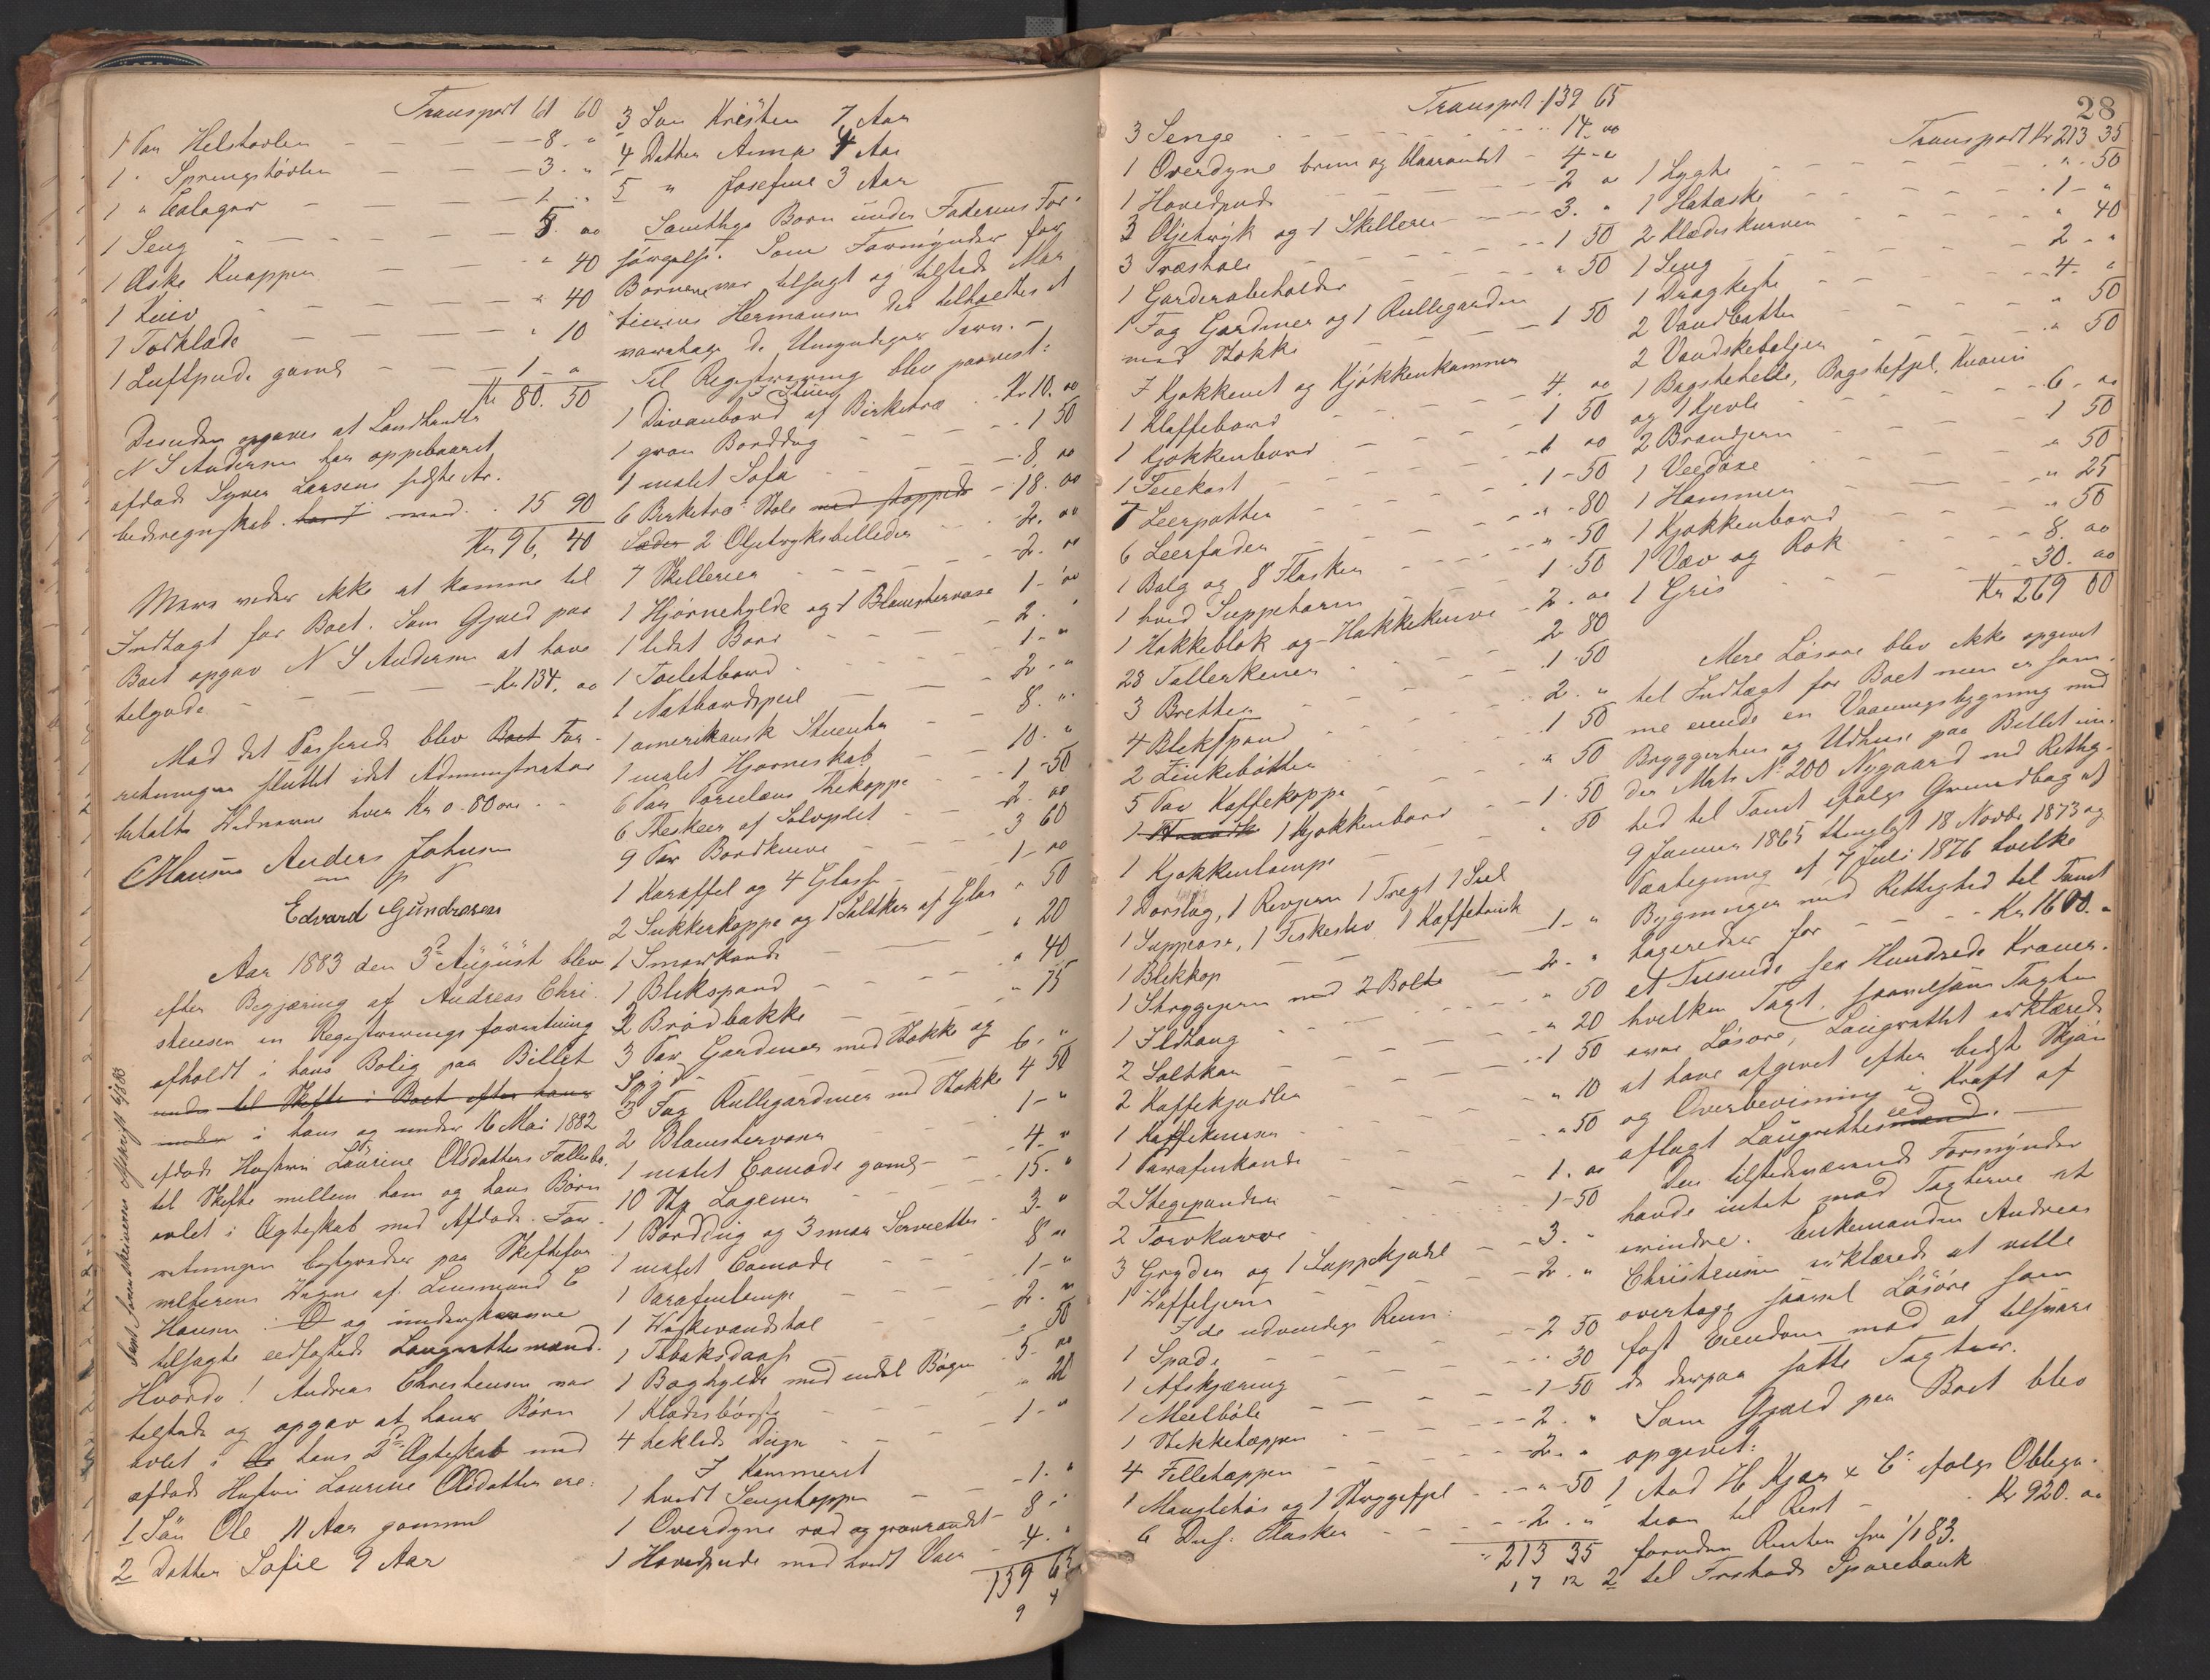 Transport 61 60
1 Par Helstøvler - 8. "
1 " Springstøvler - 3. "
1 " Calager - 1 "
1 Seng - 5. 00
1 Æske Knapper " 40
1 Kniv " 40
1 Tørklæde " 10
1 Luftpude gaml 1 - "
Kr 80. 50
Desuden opgaves at Landhandler
N S Andersen har oppebaaret
afdøde Syver Larsens sidste Ar-
beidsregnskab. med. 15 90
Kr 96, 40
Mere vides ikke at komme til
Indtægt for Boet. Som Gjæld paa
Boet opgav N S Andersen at have
tilgode - Kr 134. 00
Med det Passerede blev Boet For-
retningen sluttet idet Administrator
betalte Vidnerne hver Kr 0.80 øre.
C Hansen Anders Johnsen
Edvard Gundersen
Aar 1883 den 3die August blev
efter Begjæring af Andreas Chri-
stensen en Registrerings forretning
afholdt i hans Bolig paa Billet
under til Skifte i Boet efter hans
under i hans og under 16 Mai 1882
afdøde Hustru Laurine Olsdatters Fællesbo,
til Skifte mellem ham og hans Børn
avlet i Ægteskab med Afdøde. For-
retningen bestyredes paa Skiftefor-
valterens Vegne af Lensmand C
Hansen og underskrevne
tilsagte eedfæstede Laugrettesmænd.
Hvorda! Andreas Christensen var
tilstede og opgav at hans Børn
avlet i hans 2det Ægteskab med
afdøde Hustru Laurine Olsdatter ere:
1 Søn Ole 11 Aar gammel
2 Datter Sofie 9 Aar
3 Søn Kristen 7 Aar
4 Datter Anna 4 Aar
5 " Josefine 3 Aar
Samtlige Børn under Faderens For-
sørgelse. Som Formynder for
Børnene var tilsagt og tilstede Mar
tinius Hermansen der tilholdtes at
varetage de Umyndiges Tarv. -
Til Registrering blev paavist:
I Stuen
1 Divanbord af Birketræ Kr 10. 00
1 graa Borddug 1 50
1 malet Sofa 8, 00
6 Birketræ Stole med stoppede 18. 00
Sæder 2 Oljetryksbilleder 2. 00
7 Skillerier 2. 00
1 Hjørnehylde og 1 Blomstervase 1 - 00
1 lidet Bord 2. "
1 Toiletbord 1 - "
1 Natbordspeil 2 - "
1 amerikansk Stueuhr 8. "
1 malet Hjørneskab 10. "
6 Par Porcelæns Thekopper 1 - 50
6 Theskeer af Sølvplet 2. 00
9 Par Bordknive 3 60
1 Karaffel og 4 Glasse 1 - 00
2 Sukkerkopper og 1 Saltkar af Glas " 50
1 Smørkande " 20
1 Blikspand " 40
2 Brødbakke " 75
3 Par Gardiner med Stokke og
6. "
3 Fag Rullegardiner med Stokke 4 50
2 Blomstervaser 1 - "
1 malet Comode gaml 4. "
10 Stk Lagener 15. "
1 Borddug og 3 smaa Servietter 3. "
1 malet Comode 8 "
1 Parafinlampe 1 - "
1 Vaskevandsstol 2. "
1 Tobaksdaase " 50
1 Boghylde med endel Bøger 5. 00
1 Klædesbørste " 20
4 heklede Duge 1 - "
I Kammeret
1 hvidt Sengeteppe 1. "
1 Overdyne rød og graarandet 8 "
1 Hovedpude med hvidt Vaar 4. "
139 65
28
Transport 139 65
3 Senge 14. 00
1 Overdyne brun og blaarandet 4 - "
1 Hovedpude 2 "
3 Oljetryk og 1 Skilleri 3. "
3 Træstole 1 50
1 Garderobeholder " 50
1 Fag Gardiner og 1 Rullegardin
med Stokke 1 50
I Kjøkkenet og Kjøkkenkammer
1 Klaffebord 4. 00
1 Kjøkkenbord 1 50
1 Feiekost 1 00
7 Leerpotter 1 - 50
6 Leerfader " 80
1 Balg og 8 Flasker " 50
1 hvid Suppeterin 1 50
1 Hakkeblok og Hakkekniv 2. 00
28 Tallerkener 2 80
3 Bretter 1. 50
4 Blikspand 2. "
2 Zinkebøtter 1 50
5 Par Kaffekopper " 50
1 Kjøkkenbord 1. 50
1 Kjøkkenlampe " 50
1 Dørslag, 1 Revjern 1 Tragt 1 Siel
1 Suppeøse, 1 Fiskeslev 1 Kaffetrakt 1 - "
1 Blikkop 2. "
1 Strygejern med 2 Bolte " 50
1 Ildtang " 20
2 Saltkar 1 50
2 Kaffekjedler " 10
1 Kaffekværn " 50
1 Parafinkande
2 Stegepander 1. 00
2 Torvkurve 1 - 50
3 Gryder og 1 Suppekjedel 3. "
1 Vaffeljern 2. "
I de udvendige Rum:
1 Spade 2 50
1 Afskjæring 30
1 Meelbøle 1 - 50
1 Stikketæpper 2. "
4 Filletæpper 2. "
1 Manglestok og 1 Strygefjel " 50
6 Dus. Flasker 2. "
213 35
17 12
Transport Kr 213 35
1 Lygte " 50
1 Hatæske 1 - "
2 Klædeskurver " 40
1 Seng 2 - "
1 Dragkiste 4. "
2 Vandbøtter " 50
2 Vandskebaljer " 50
1 Bagstehelle, Bagstefjel, Kvarn
og 1 Kjevle 6. 00
2 Brandjern 1 50
1 Veedøxe " 50
1 Hammer " 25
1 Kjøkkenbord " 50
1 Væv og Rok 8. 00
1 Gris 30. 00
Kr 269 00
Mere Løsøre blev ikke opgivet
til Indtægt for Boet men er sam-
me eiende en Vaaningsbygning med
Bryggerhus og Udhuse paa Billet un-
der Matr No 200 Nygaard med Rettig-
hed til Tomt ifølge Grundbog af
9 Januar 1865 thinglyst 18 Novbr 1873 og
Paategning af 7 Juli 1876 hvilke
Bygninger med Rettighed til Tomt
taxeredes for Kr 1600. "
et Tusende sex Hundrede Kroner.
hvilken Taxt, saavelsom Taxten
over Løsøre, Laugrettet erklærede
at have afgivet efter bedste Skjøn
og Overbevisning i Kraft af
aflagt Laugrettesmænd eed.
Den tilstedeværende Formynder
havde intet mod Taxterne at
erindre. Enkemanden Andreas
Christensen erklærede at ville
overtage saavel Løsøre som
fast Eiendom mod at tilsvare
de derpaa satte Taxter.
Som Gjæld paa Boet blev
opgivet:
1 Aad H Kjær & Co ifølge Obliga-
tion til Rest Kr 920. 00
foruden Renter fra 1/1 83.
2 til Irstads Sparebank